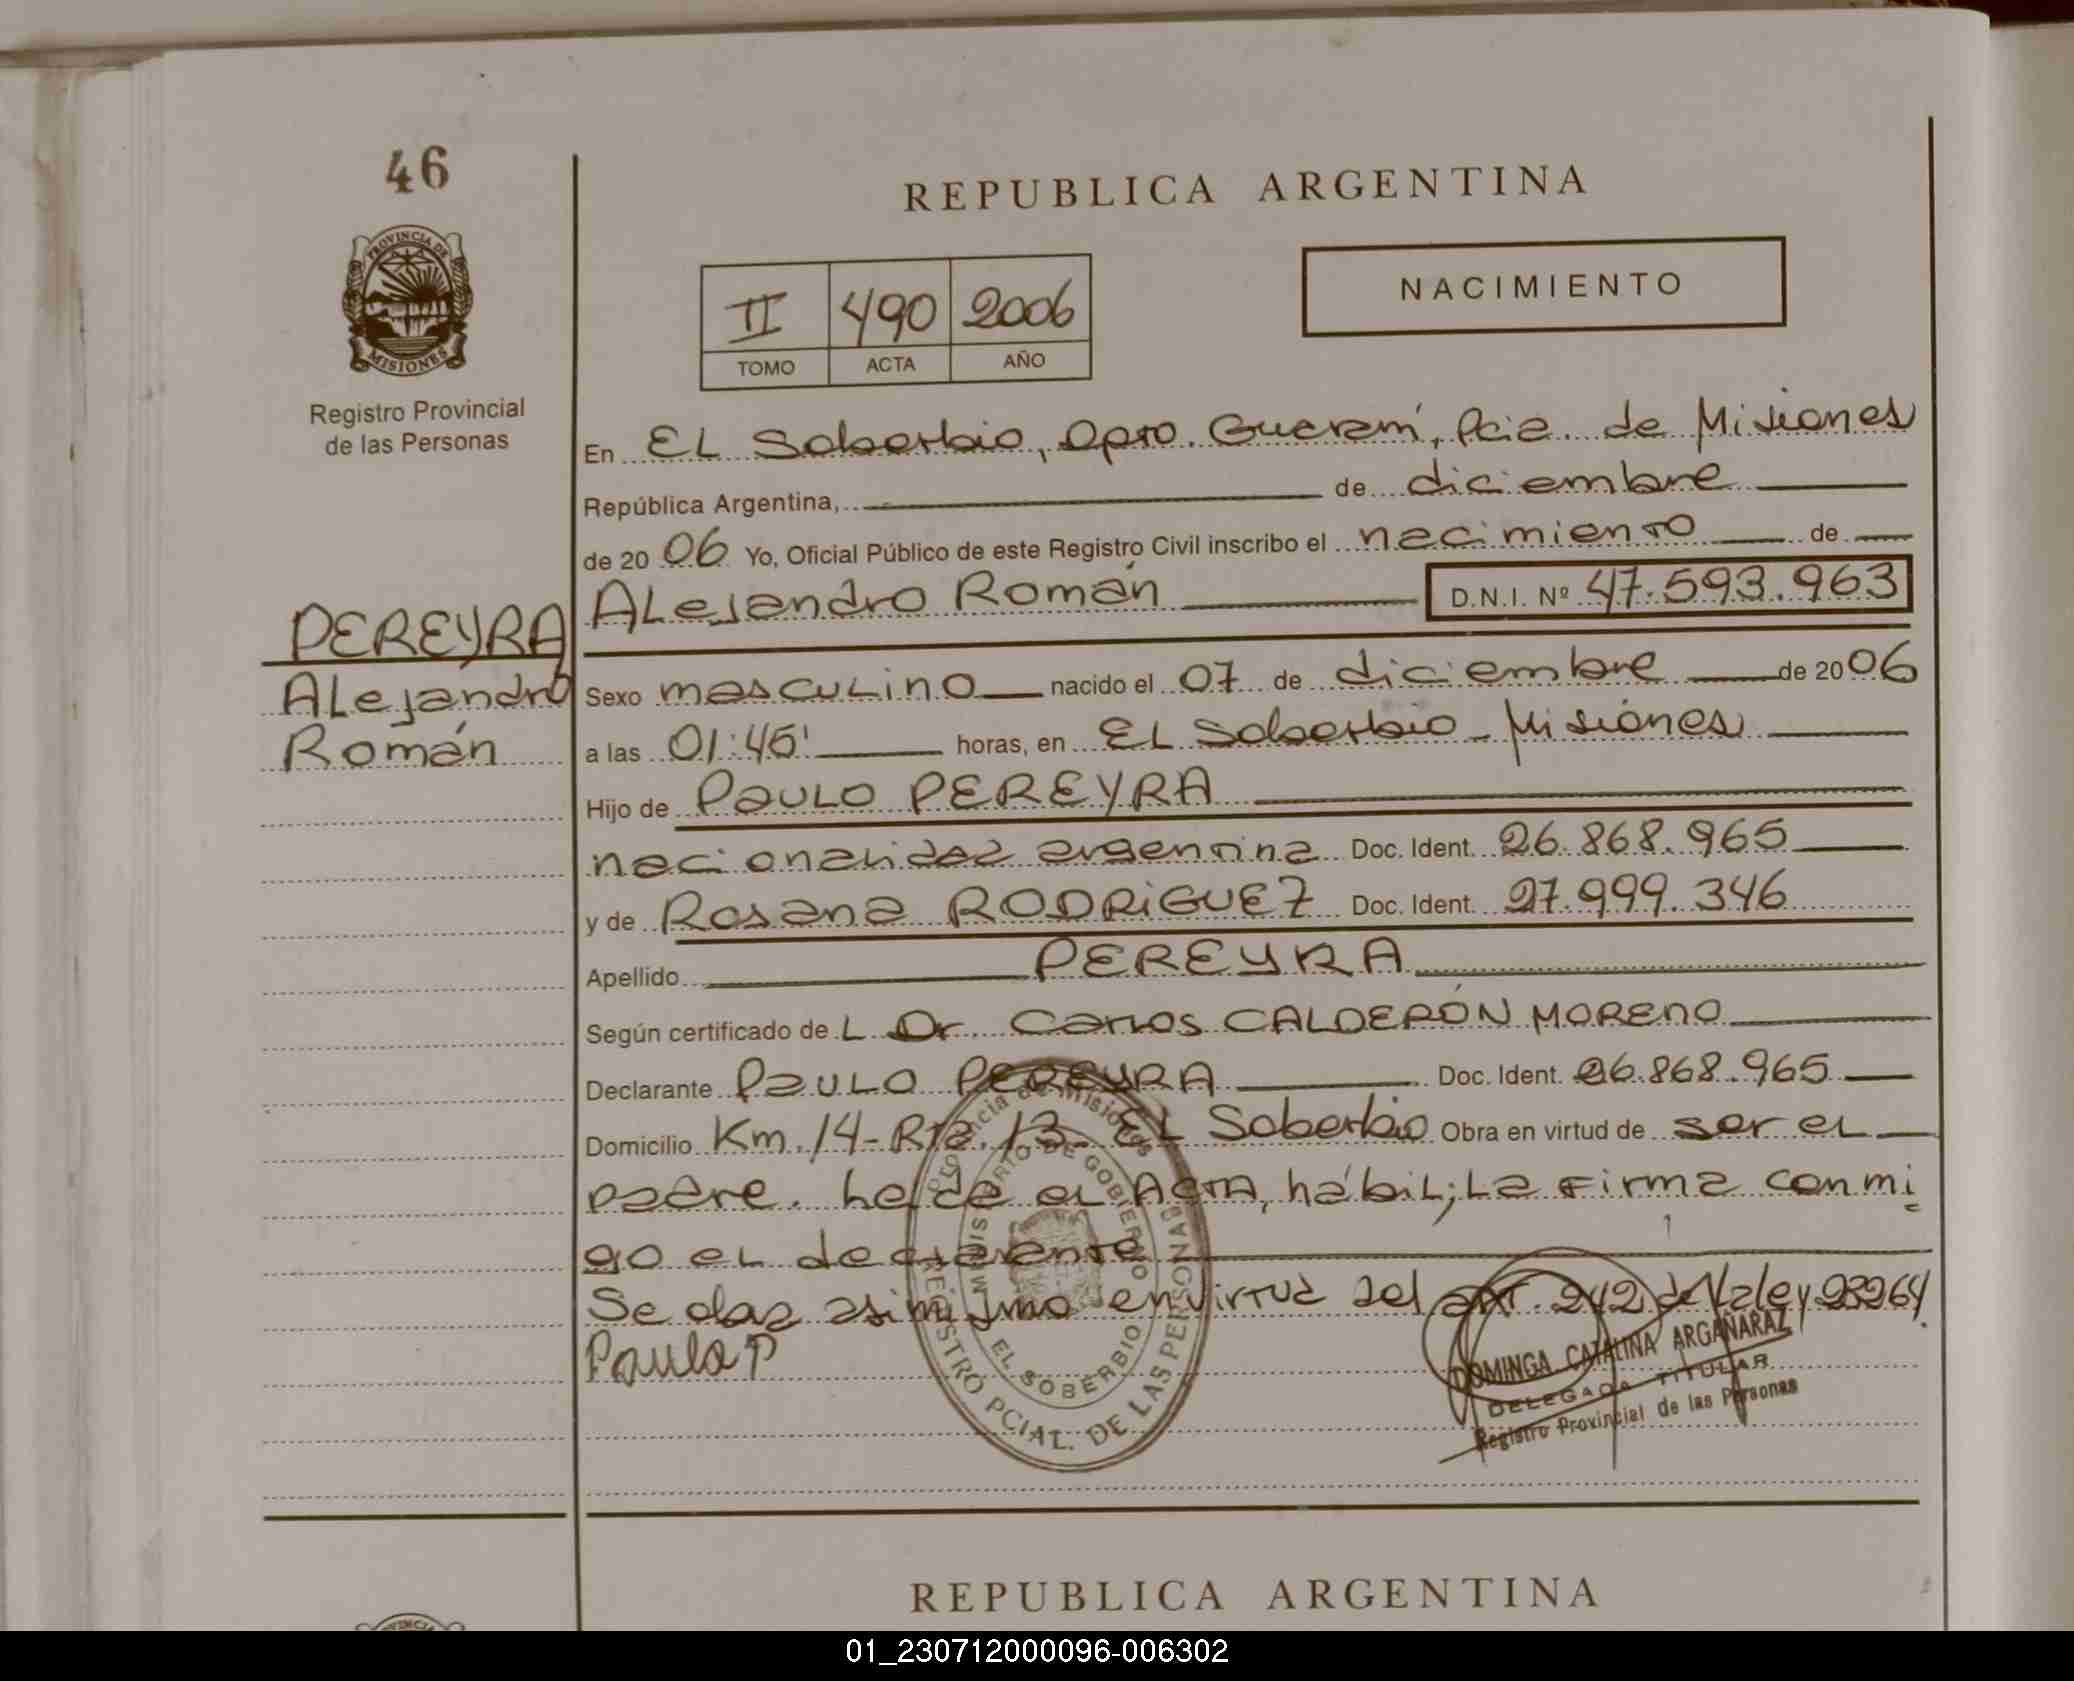 46
REPUBLICA ARGENTINA
PROVINCIA DE
MISIONES
Registro Provincial
de las Personas
II 490 2006
TOMO ACTA AÑO
NACIMIENTO
En EL Soberbio, Dpto. Guaraní, Pcia. de Misiones
República Argentina, de diciembre
de 20 06 Yo, Oficial Público de este Registro Civil inscribo el nacimiento de
ALejandro Román D.N.I. Nº 47.593.963
PEREYRA
ALejandro
Román
Sexo mascuLino nacido el 07 de diciembre de 20 06
a las 01:45' horas, en EL Soberbio - Misiones
Hijo de PauLo PEREYRA
nacionaLidad argentina Doc. Ident. 26.868.965
y de Rosana RODRiGUEZ Doc. Ident. 27.999.346
Apellido PEREYRA
Según certificado de L Dr. CarLos CALDERÓN MORENO
Declarante PauLo PEREYRA Doc. Ident. 26.868.965
Domicilio Km. 14 - Rta. 13 - EL Soberbio Obra en virtud de ser eL
padre. Leída eL ACTA, hábiL; La firma conmi
go eL decLarante
Se asimismo en virtud del art. 242 de la ley 23264
Paulo P
Provincia de Misiones
MINISTERIO DE GOBIERNO
EL SOBERBIO
REGISTRO PCIAL. DE LAS PERSONAS
DOMINGA CATALINA ARGAÑARAZ
DELEGADA TITULAR
Registro Provincial de las Personas
REPUBLICA ARGENTINA
01_230712000096-006302